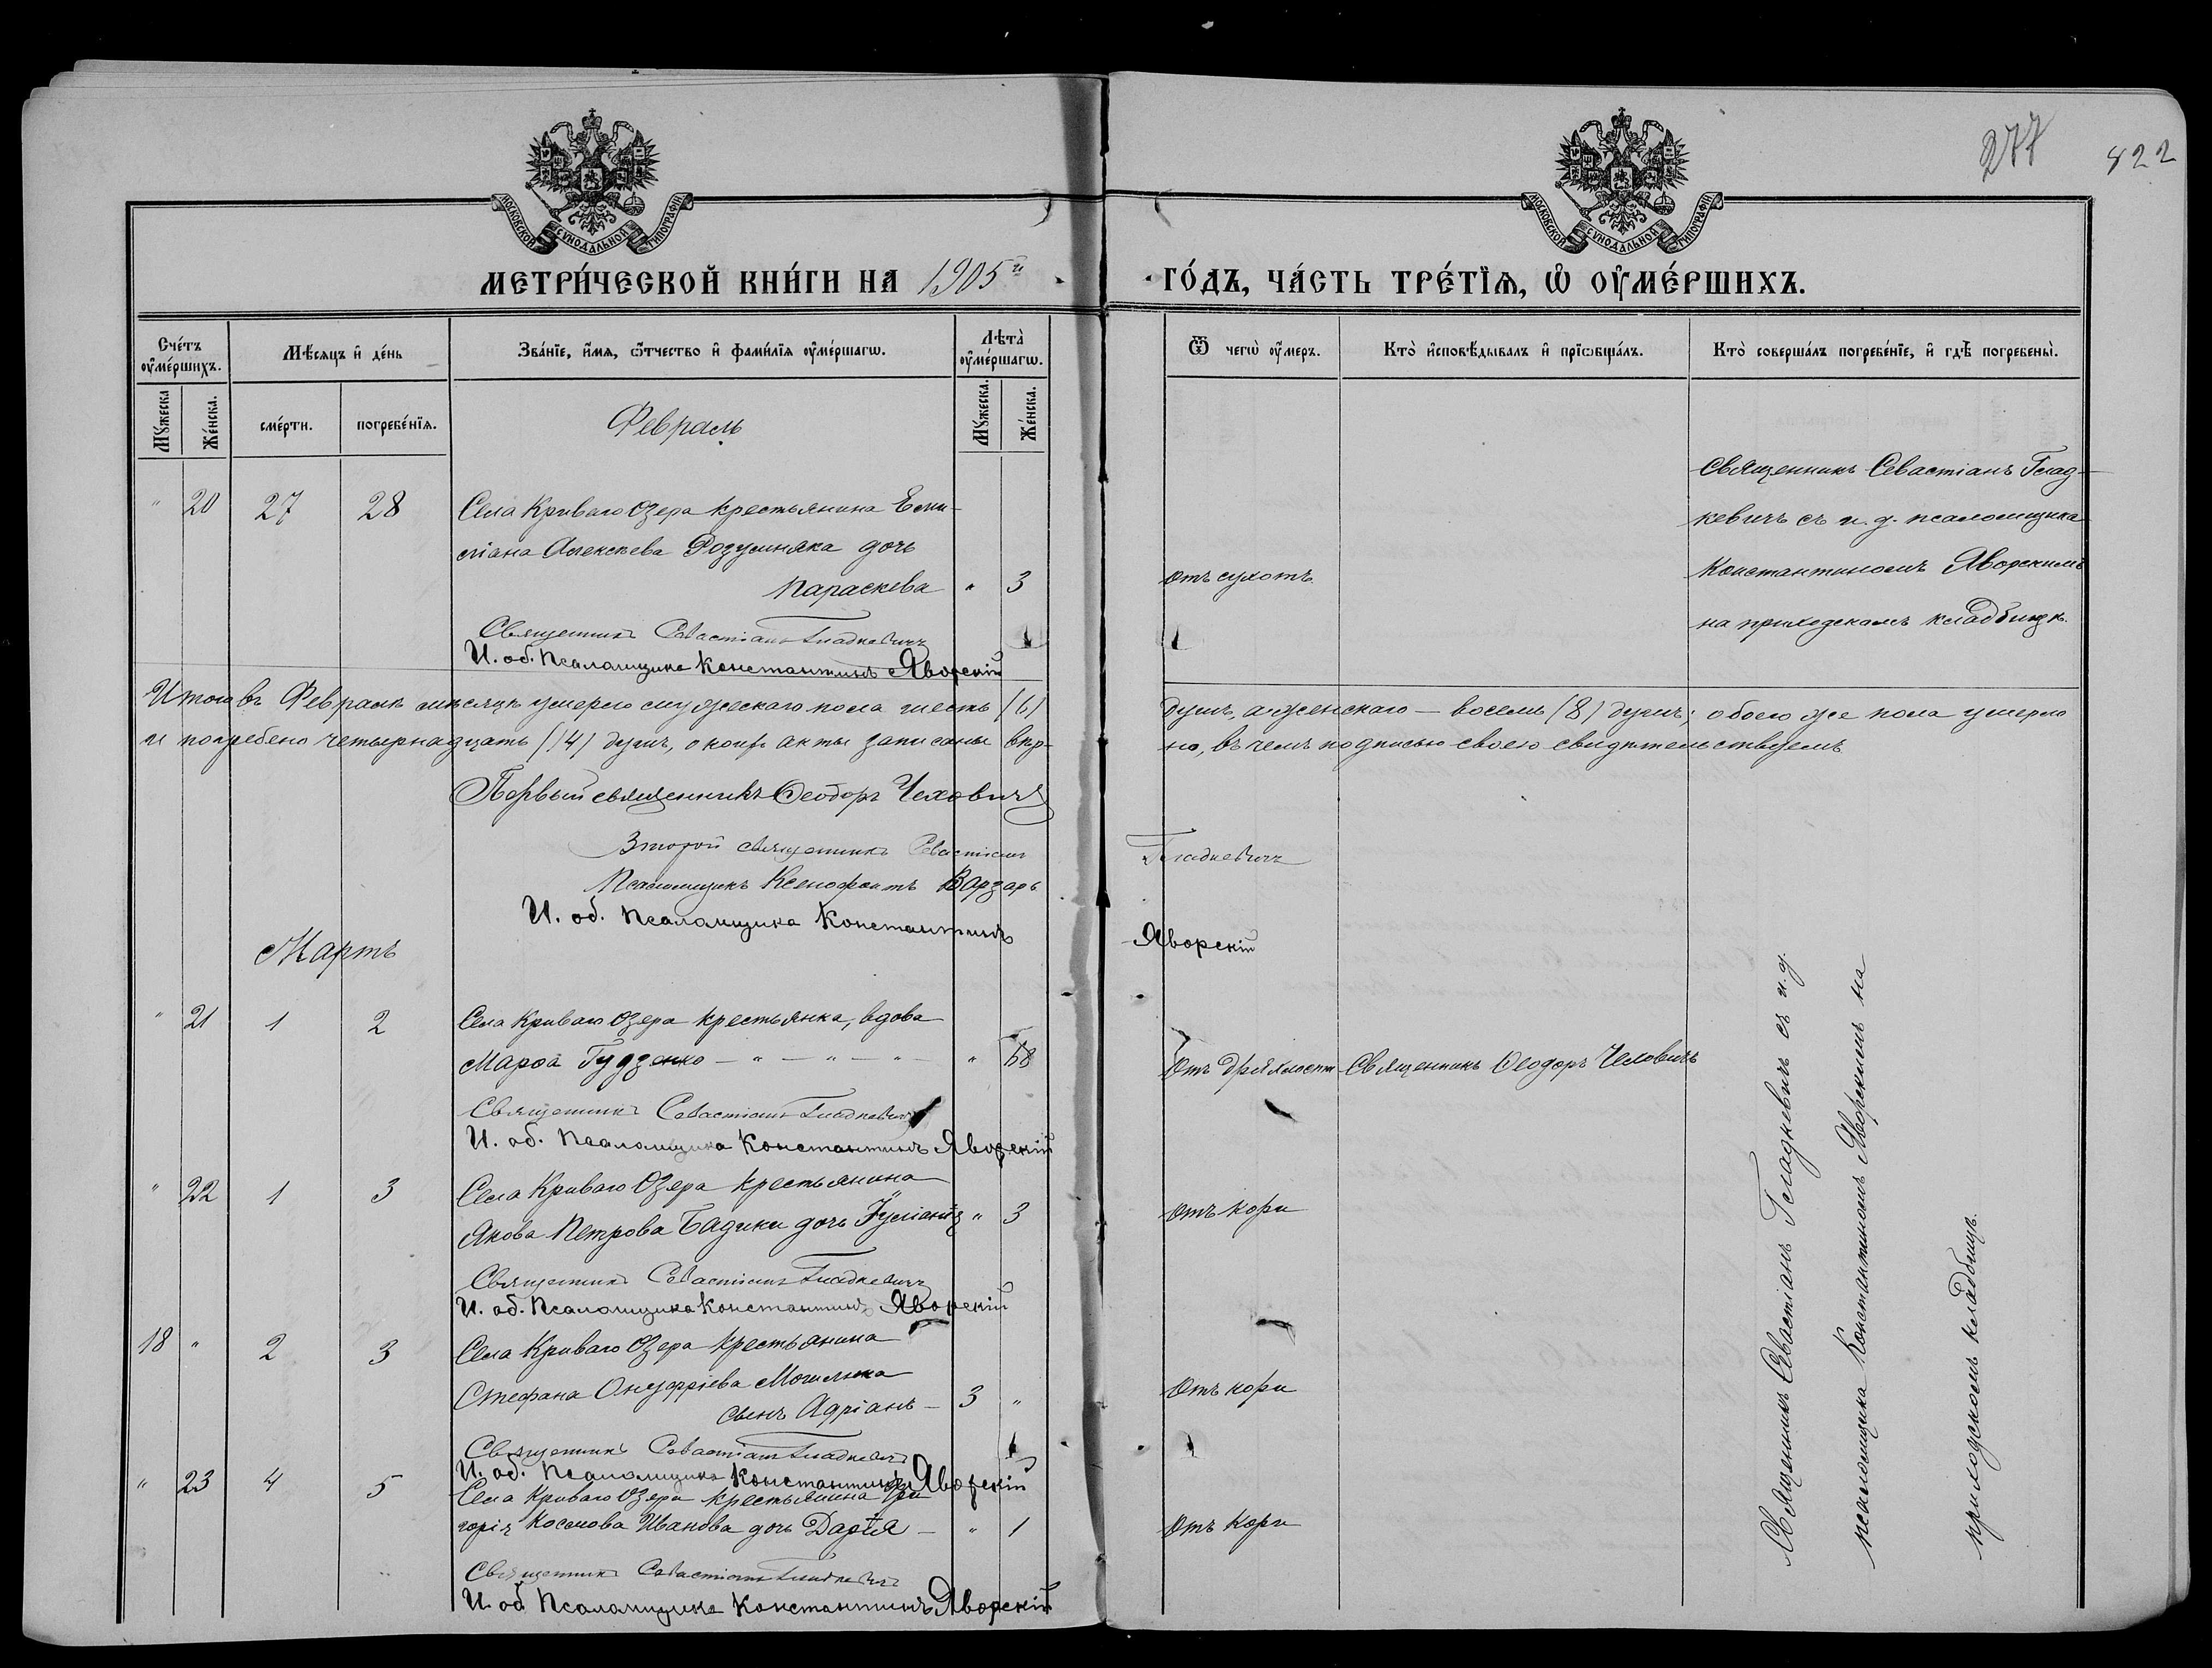 277
422
МОСКОВСКОЙ СУНОДАЛЬНОЙ ТИПОГРАФІИ
МОСКОВСКОЙ СУНОДАЛЬНОЙ ТИПОГРАФІИ
МЕТРИ́ЧЕСКОЙ КНИ́ГИ НА 1905й
ГО́ДЪ, ЧА́СТЬ ТРЕ́ТЇѦ, Ѽ ОУ҆МЕ́РШИХЪ.
Сче́тъ оу҆ме́ршихъ.
Мѣ́сяцъ и҆ де́нь
Зва́нїе, и҆́мѧ, ѻ҆́тчество и҆ фами́лїѧ оу҆ме́ршагѡ.
Лѣта̀ оу҆ме́ршагѡ.
Ѿ чегѡ̀ оу҆́меръ.
Кто̀ и҆сповѣ́дывалъ и҆ прїѡбща́лъ.
Кто̀ соверша́лъ погребе́нїе, и҆ гдѣ̀ погребены̀.
Мꙋ́жеска
Же́нска.
сме́рти.
погребе́нїѧ.
Мꙋ́жеска.
Же́нска.
Февраль
" 20 27 28 Села Криваго Озера крестьянина Еми-
ліана Алексѣева Розумняка дочь
Параскева " 3
отъ сухотъ.
Священникъ Севастіанъ Глад-
кевичъ съ и. д. псаломщика
Константиномъ Яворскимъ
на приходскомъ кладбищѣ.
Священникъ Севастіанъ Гладкевичъ
И. об. Псаломщика Константинъ Яворскій
Итого въ Февралѣ мѣсяцѣ умерло мужескаго пола шесть (6) душъ, а женскаго — восемь (8) душъ; обоего же пола умерло
и погребено четырнадцать (14) душъ, о коихъ акты записаны вѣр- но, въ чемъ подписью своею свидѣтельствуемъ
Первый священникъ Ѳеодоръ Чеховичъ
Второй священникъ Севастіанъ Гладкевичъ
Псаломщикъ Ксенофонтъ Варзарь
И. об. Псаломщика Константинъ Яворскій
Мартъ
" 21 1 2 Села Криваго Озера крестьянка, вдова
Марѳа Гудзенко — " — " — " — " 58
Отъ дряхлости Священникъ Ѳеодоръ Чеховичъ
Священникъ Севастіанъ Гладкевичъ
И. об. Псаломщика Константинъ Яворскій
" 22 1 3 Села Криваго Озера крестьянина
Якова Петрова Бадики дочь " 3
отъ кори
Священникъ Севастіанъ Гладкевичъ
И. об. Псаломщика Константинъ Яворскій
18 " 2 3 Села Криваго Озера крестьянина
Стефана Онуфріева
сынъ Адріанъ — 3 "
Отъ кори
Священникъ Севастіанъ Гладкевичъ
И. об. Псаломщика Константинъ Яворскій
" 23 4 5 Села Криваго Озера крестьянина Гри
горія Иванова дочь Дарія — " 1
Отъ Кори
Священникъ Севастіанъ Гладкевичъ
И. об Псаломщика Константинъ Яворскій
Священникъ Севастіанъ Гладкевичъ съ и. д.
псаломщика Константиномъ Яворскимъ на
приходскомъ кладбищѣ.